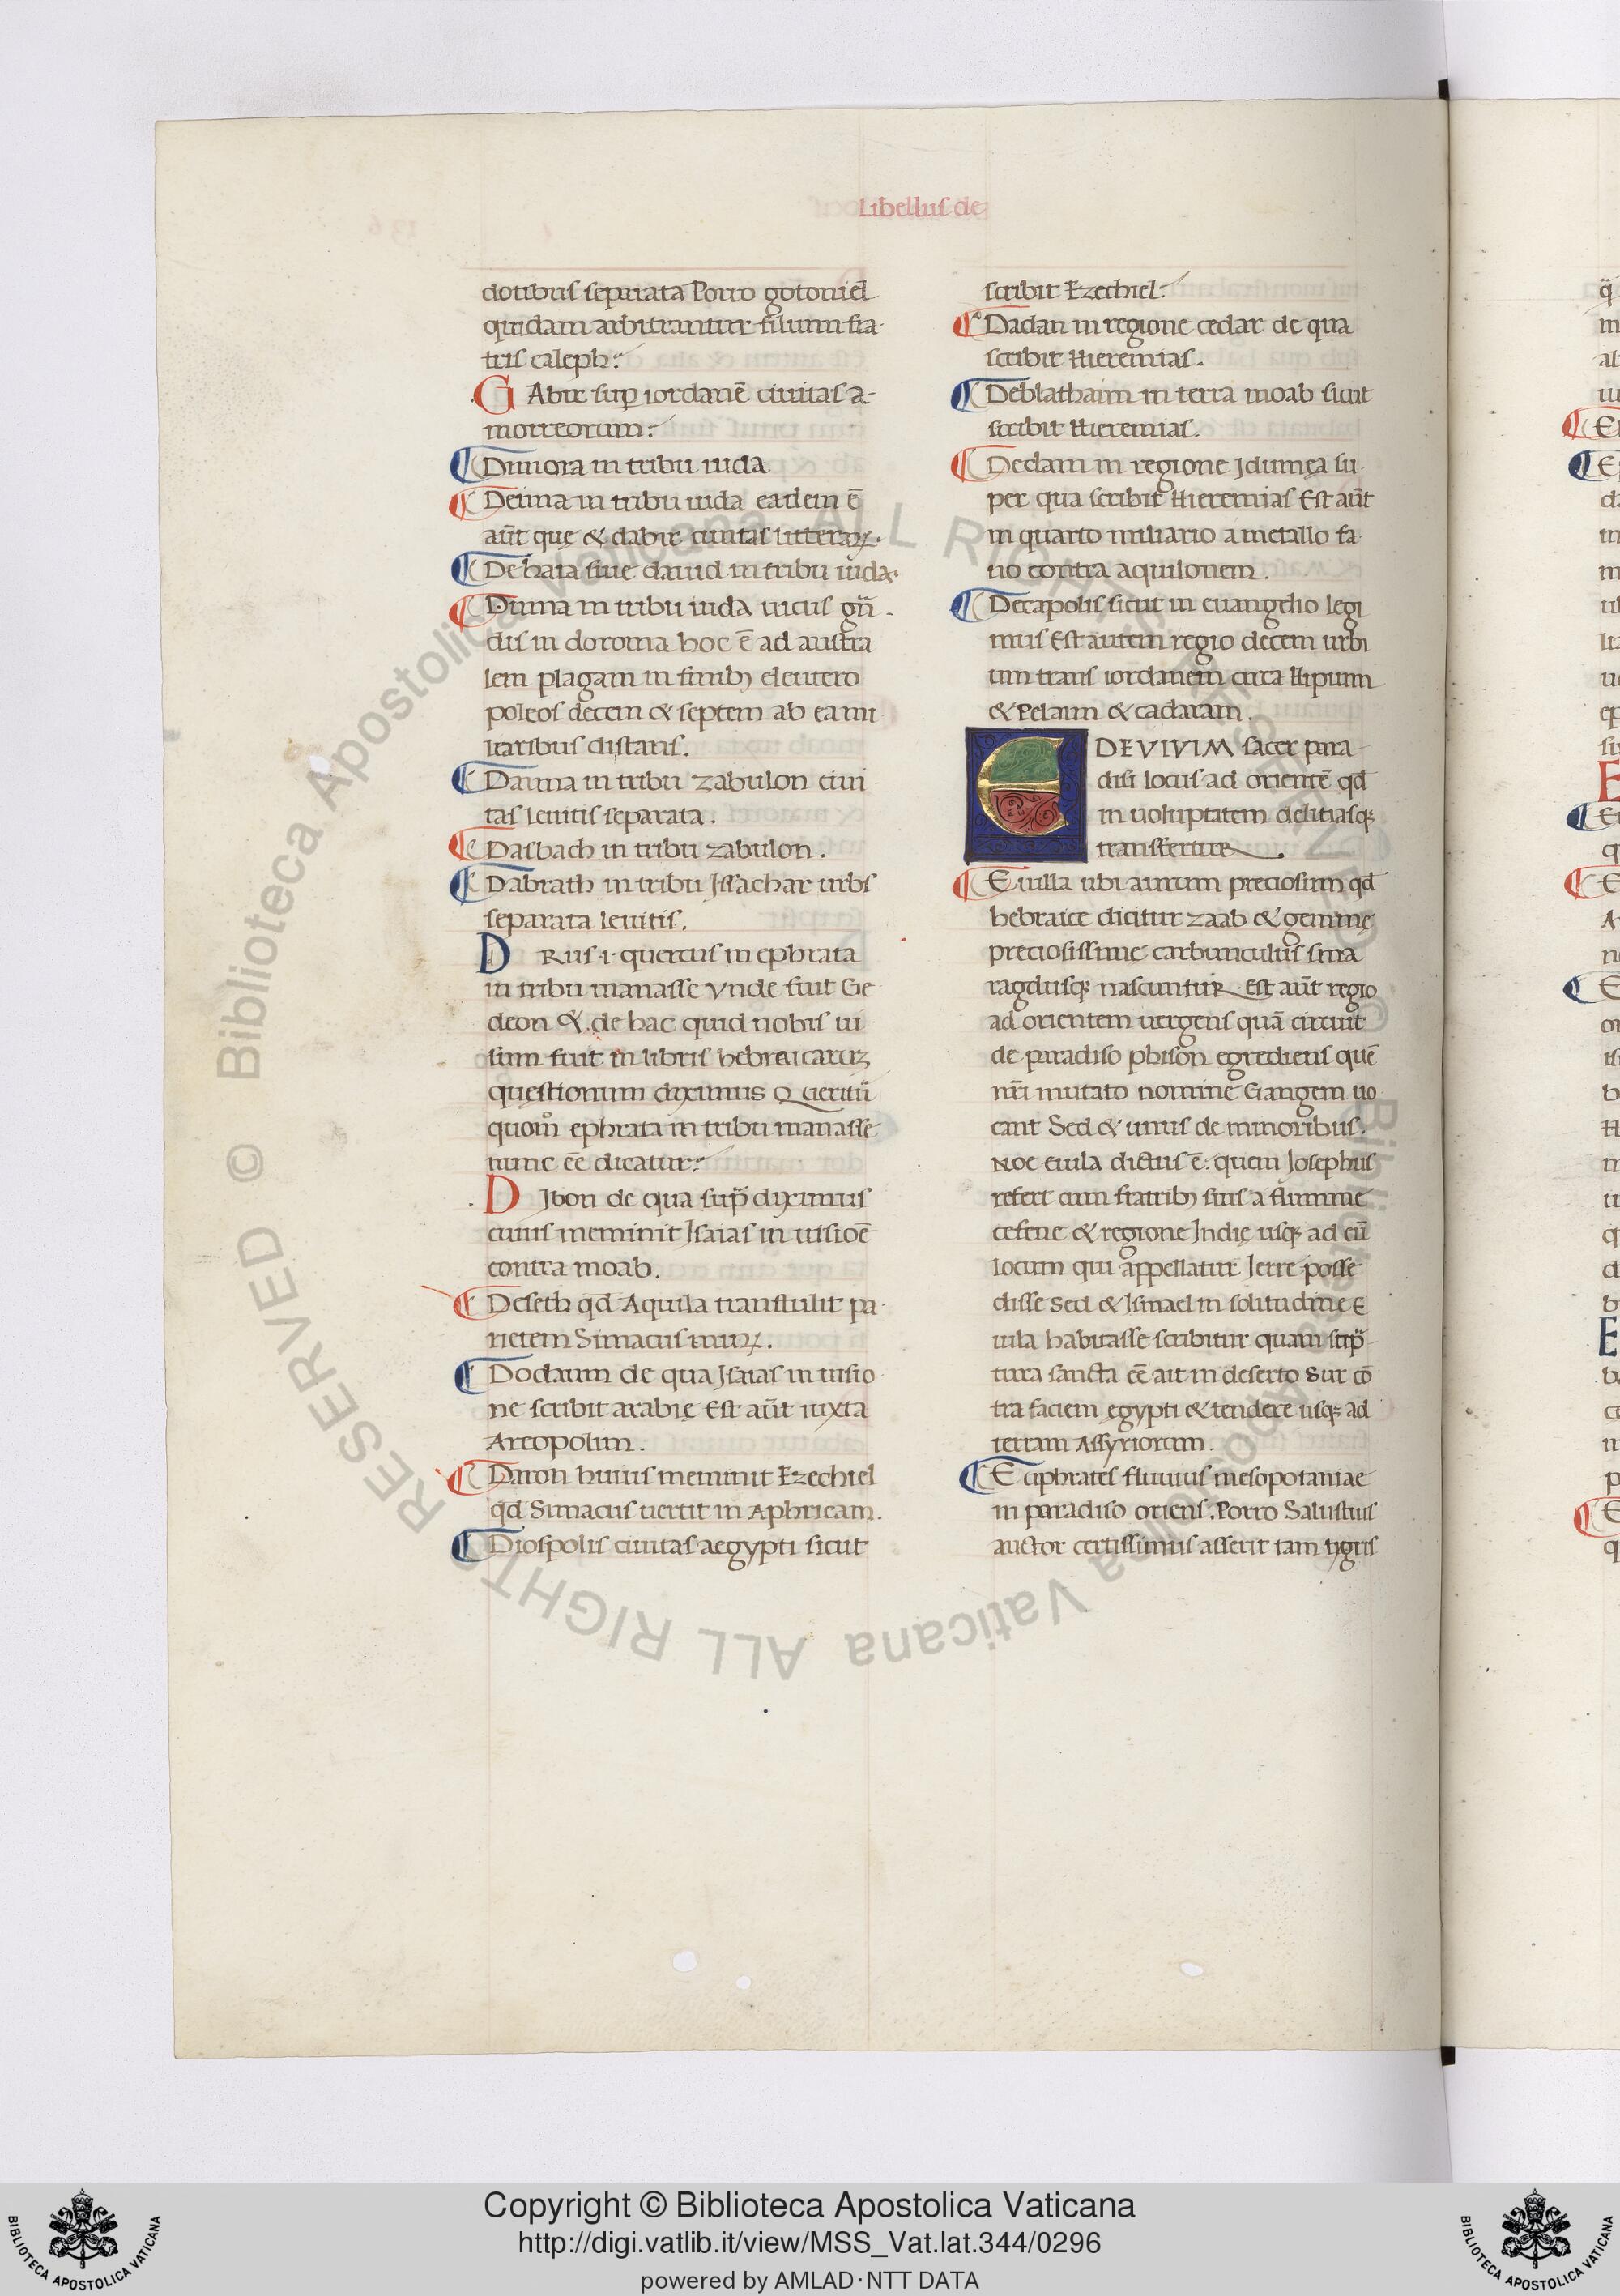 Libellus de
dotibus sepata Porro gotoniel
quidam arbitrantur filium fra
tris caleph:
GAbir sup iordanē ciuitas a-
morreorum:
Dimora in tribu iuda
Denna in tribu iuda eadem ē
aūt quę & dabir ciuitas litterarꝝ.
Dehaia siue dauid in tribu iuda.
Duma in tribu iuda uicus grā.
dis in doroma hoc ē ad austra
lem plagam in finibꝫ eleutero
poleos decem & septem ab ea mi
liaribus distans.
Damna in tribu zabulon ciui
tas leuitis separata.
Dasbach in tribu zabulon.
Dabrath in tribu Jssachar urbs
separata leuitis.
DRUS .i. quercus in ephrata
in tribu manasse vnde fuit Ge
deon &. de hac quid nobis ui
sum fuit in libris hebraicarꝝ
questionum diximus Queritū
quom̊ ephrata in tribu manasse
nunc ēē dicatur:
DJbon de qua sup̄ diximus
cuius meminit Jsaias in uisioē
contra moab.
Deseth qd Aquila transtulit pa
rietem Simacus murꝝ.
Dodaum de qua Jsaias in uisio
ne scribit arabię Est aūt iuxta
Areopolim.
Daron huius meminit Ezechiel
qd Simacus uertit in Aphricam.
Diospolis ciuitas aegypti sicut
scribit Ezechiel:
Dadan in regione cedar de qua
scribit Hieremias.
Deblathaim in terra moab sicut
scribit Hieremias.
Dedam in regione Jdumęa su
per qua scribit Hieremias Est aūt
in quarto miliario a metallo fa
no contra aquilonem.
Decapolis sicut in euangelio legi
mus Est autem regio decem urbi
um trans iordanem circa Hipum
& Pelaim & cadaram.
EDEVIVIM sacer para
disi locus ad orientē qd
in uoluptatem delitiasqꝫ
transfertur.
Euilla ubi aurum preciosum qd
hebraice dicitur zaab & gemmę
preciosissime carbunculus sma
ragdusqꝫ nascuntur. Est aūt regio
ad orientem uergens quā circuit
de paradiso phison egrediens quē
nr̄i mutato nomine Gangem uo
cant Sed & unus de minoribus.
Noe euila dictus ē: quem Josephus
refert cum fratribꝫ suis a flumine
cefene & regione Indię usqꝫ ad eū
locum qui appellatur Jerre posse
disse Sed & Ismael in solitudine E
uila habitasse scribitur quam scp̄
tura sancta ēē ait in deserto Sur cō
tra faciem egypti & tendere usqꝫ ad
terram Assyriorum.
Euphrates fluuius mesopotaniae
in paradiso oriens. Porro Salustius
auctor certissimus asserit tam tigris
Copyright © Biblioteca Apostolica Vaticana
http://digi.vatlib.it/view/MSS_Vat.lat.344/0296
powered by AMLAD·NTT DATA
BIBLIOTECA APOSTOLICA VATICANA
BIBLIOTECA APOSTOLICA VATICANA
© Biblioteca Apostolica Vaticana ALL RIGHTS RESERVED © Biblioteca Apostolica Vaticana ALL RIGHTS RESERVED